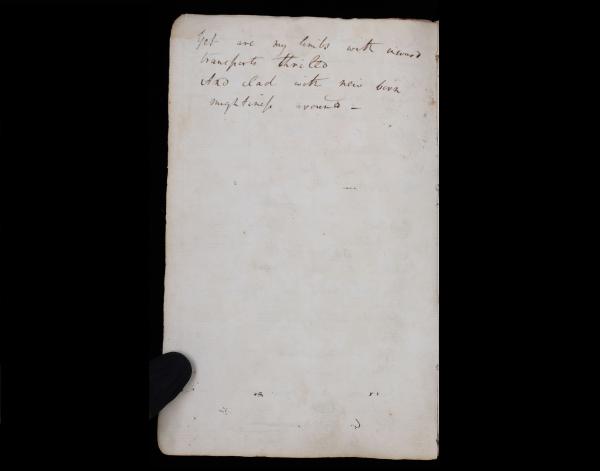 Yet are my limbs with inward
transports thrilled
And clad with new born
mightiness around —